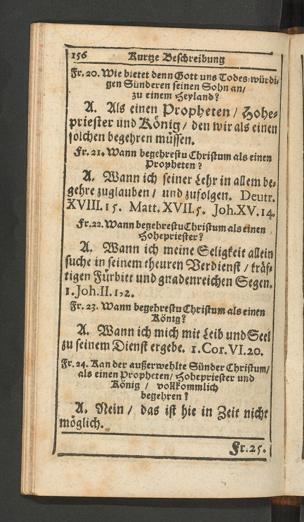 156 Kurtze Beschreibung
Fr. 20. Wie bietet denn Gott uns Todes-würdi-
gen Sünderen seinen Sohn an/
zu einem Heyland?
A. Als einen Propheten / Hohe-
priester und König / den wir als einen
solchen begehren müssen.
Fr. 21. Wann begehrestu Christum als einen
Propheten?
A. Wann ich seiner Lehr in allem be-
gehre zuglauben / und zufolgen. Deutr.
XVIII. 15. Matt. XVII. 5. Joh. XV. 14.
Fr. 22. Wann begehrestu Christum als einen
Hohepriester?
A. Wann ich meine Seligkeit allein
suche in seinem theuren Verdienst / kräf-
tigen Fürbitt und gnadenreichen Segen.
1. Joh. II. 1, 2.
Fr. 23. Wann begehrestu Christum als einen
König?
A. Wann ich mich mit Leib und Seel
zu seinem Dienst ergebe. 1. Cor. VI. 20.
Fr. 24. Kan der außerwehlte Sünder Christum/
als einen Propheten / Hohepriester und
König / vollkommlich
begehren?
A. Nein / das ist hie in Zeit nicht
möglich.
Fr. 25.